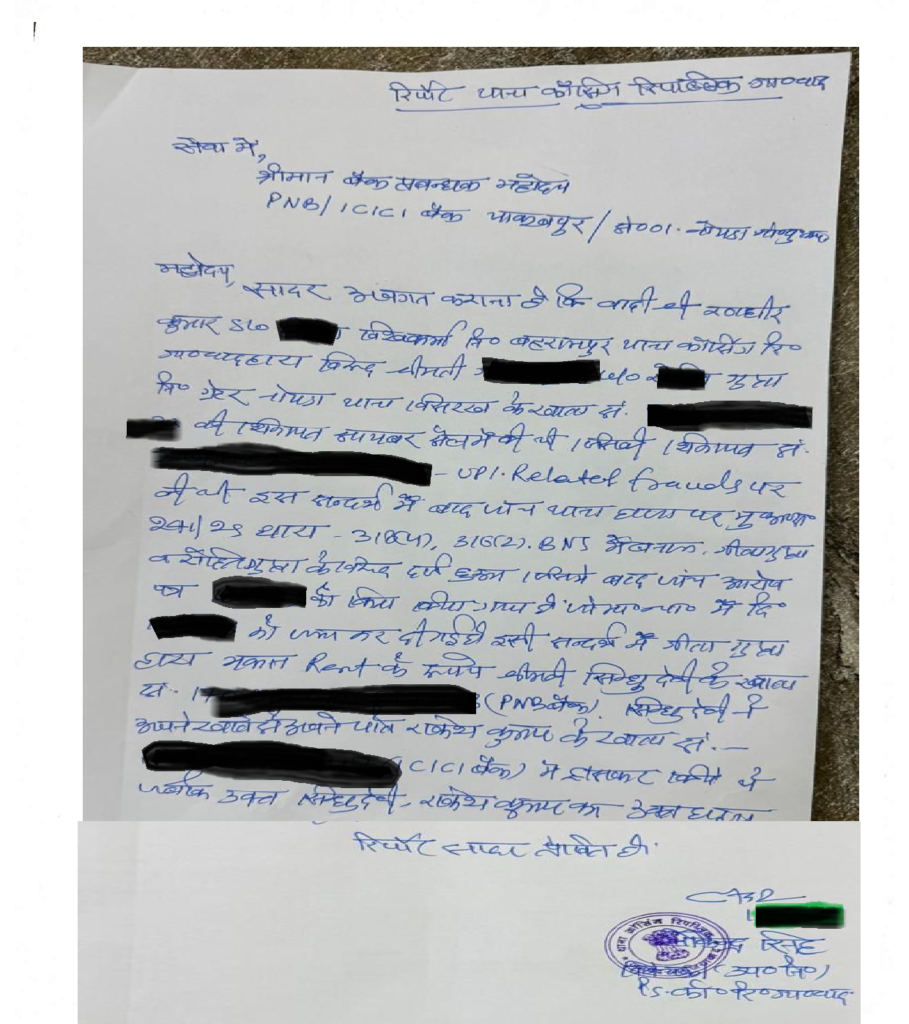 रिपोर्ट थाना क्रॉसिंग रिपब्लिक गा०बाद
सेवा में,
श्रीमान बैंक प्रबन्धक महोदय
PNB/ICICI बैंक याकूबपुर/
महोदय,
सादर अवगत कराना है कि वादी श्री रणधीर
कुमार S/o विश्वकर्मा नि० बहरामपुर थाना क्रॉसिंग रि०
गा०बाद द्वारा विरुद्ध श्रीमती w/o गुप्ता
नि० ग्रेटर नोएडा थाना बिसरख के खाता सं.
की शिकायत सायबर सेल में की थी जिसकी शिकायत सं.
- UPI. Related frauds पर
की थी इस सन्दर्भ में बाद जांच थाना हाजा पर मु०अ०स०
धारा - 318(4), 316(2). BNS
गुप्ता के विरुद्ध दर्ज हुआ जिसमें बाद जांच आरोप
पत्र को किया गया है जो मा० न्या० में दि०
को जमा कर दी गई है इसी सन्दर्भ में गीता गुप्ता
द्वारा मकान Rent के रूपये श्रीमती सिन्धु देवी के खाता
सं. (PNB बैंक). सिन्धु देवी ने
अपने खाते से अपने पति राकेश कुमार के खाता सं. -
ICICI बैंक) में ट्रांसफर किये थे
जबकि उक्त सिन्धु देवी, राकेश कुमार का उक्त घटना
रिपोर्ट सादर प्रेषित है.
थाना क्रॉसिंग रिपब्लिक
सिंह
(उ०नि०)
P.S. क्रा० रि० गा०बाद